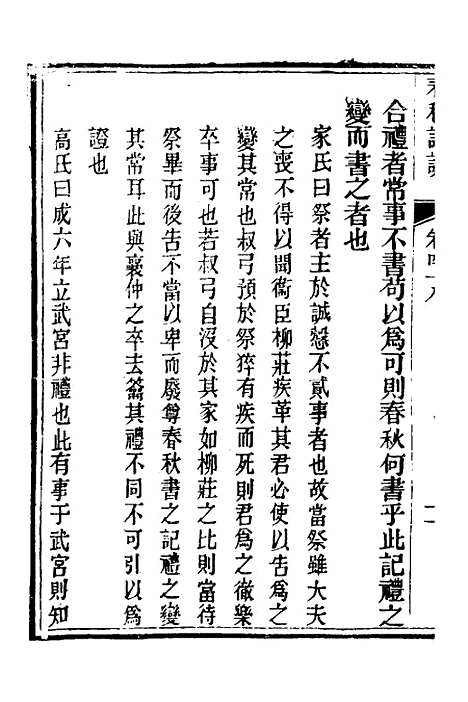 合禮者常事不書苟以爲可則春秋何書乎此記禮之
變而書之者也
家氏曰祭者主於誠慤不貳事者也故當祭雖大夫
之喪不得以聞衞臣柳莊疾革其君必使以告爲之
變其常也叔弓預於祭猝有疾而死則君爲之徹樂
卒事可也若叔弓自沒於其家如柳莊之比則當待
祭畢而後告不當以卑而廢尊春秋書之記禮之變
其常耳此與襄仲之卒去籥其禮不同不可引以爲
證也
高氏曰成六年立武宮非禮也此有事于武宮則知